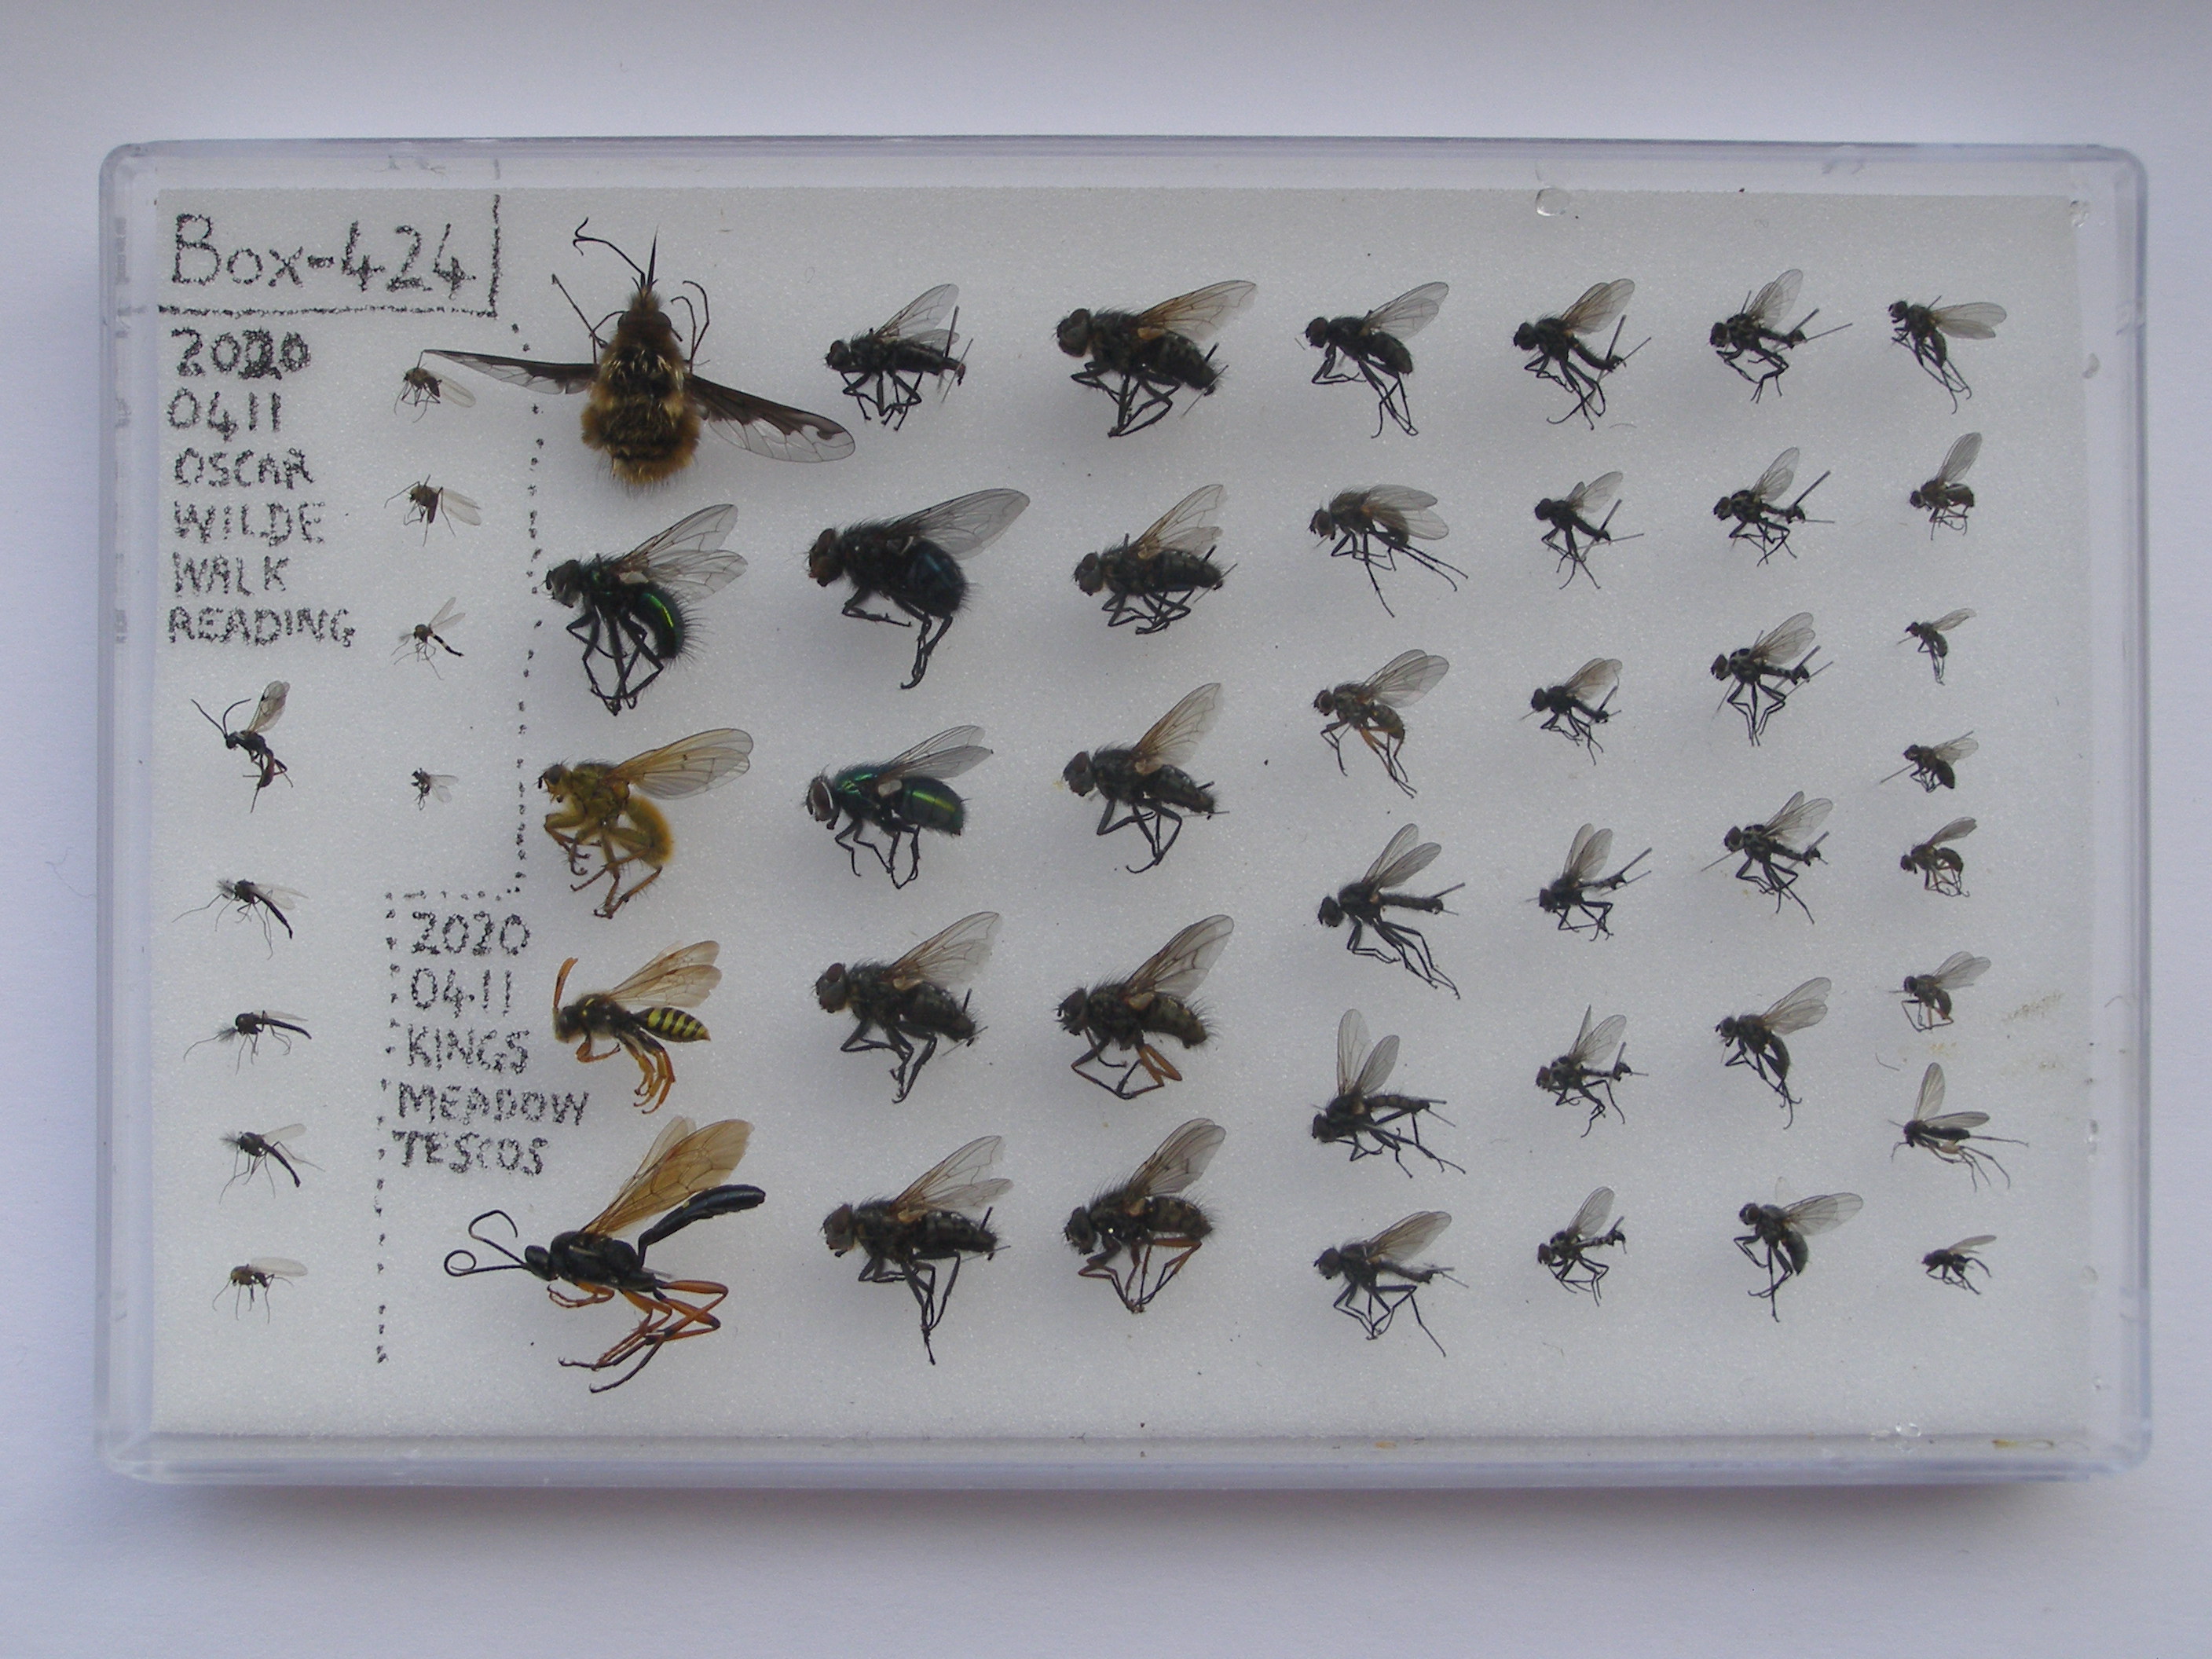 Box-424
2020
0411
OSCAR
WILDE
WALK
READING
2020
04.11
KINGS
MEADOW
TESCOS